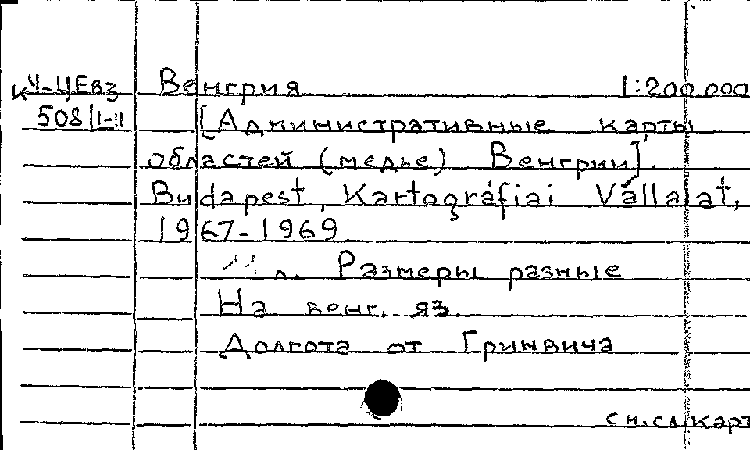 Ку-ЦЕвз Венгрия 1:200.000
508/I-II [Административные карты
областей (медье) Венгрии].
Budapest, Kartográfiai Vállalat,
1967-1969
л. Размеры разные
На венг. яз.
Долгота от Гринвича
см.сл.карт